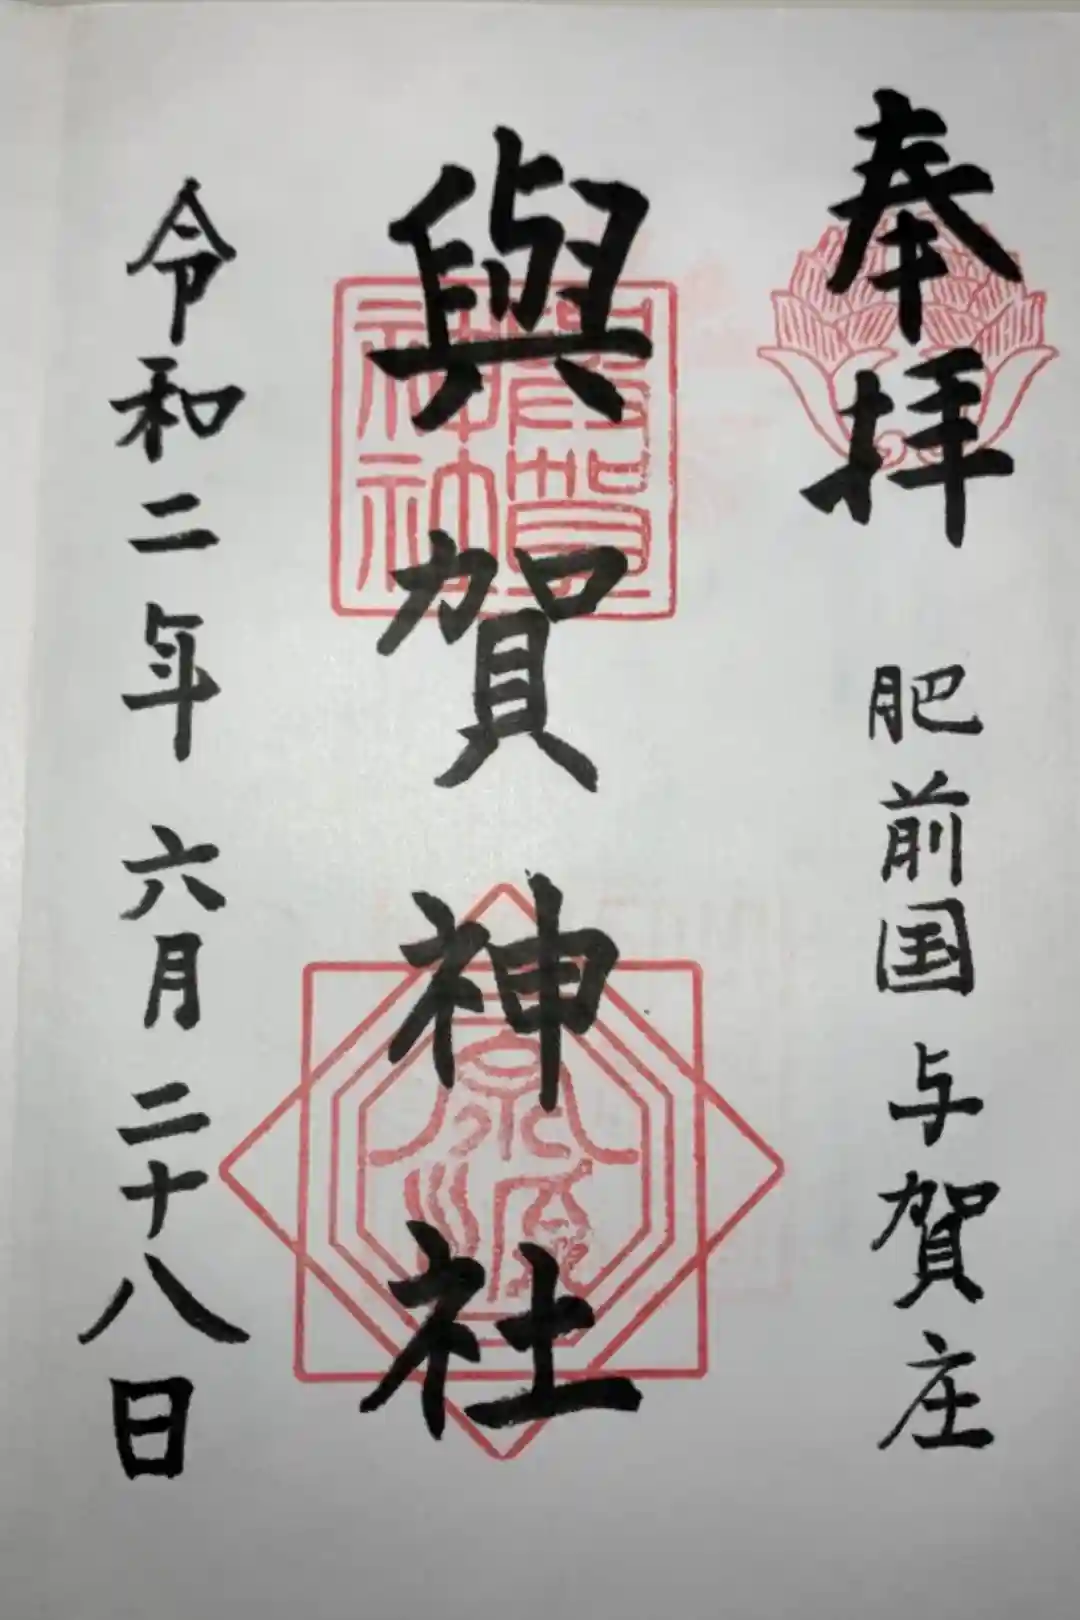 奉拝
肥前国与賀庄
與賀神社
令和二年六月二十八日